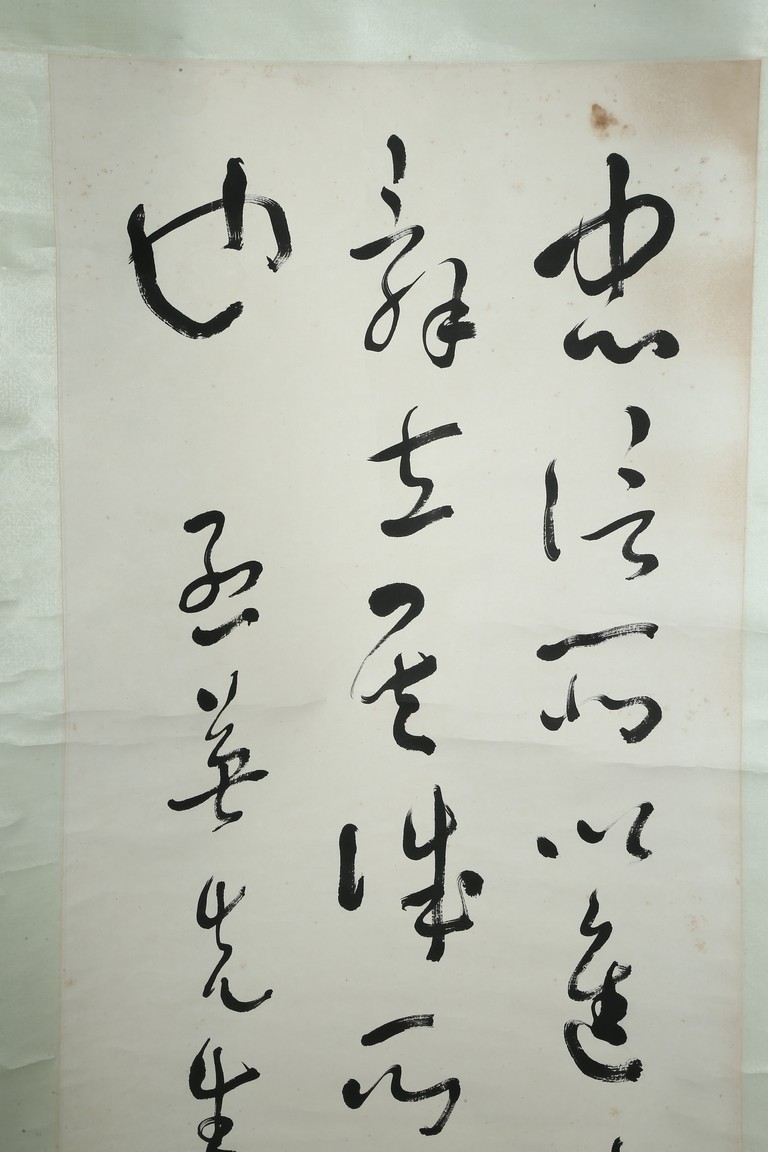 忠信所以進
辭立其誠所
也 孟英先生